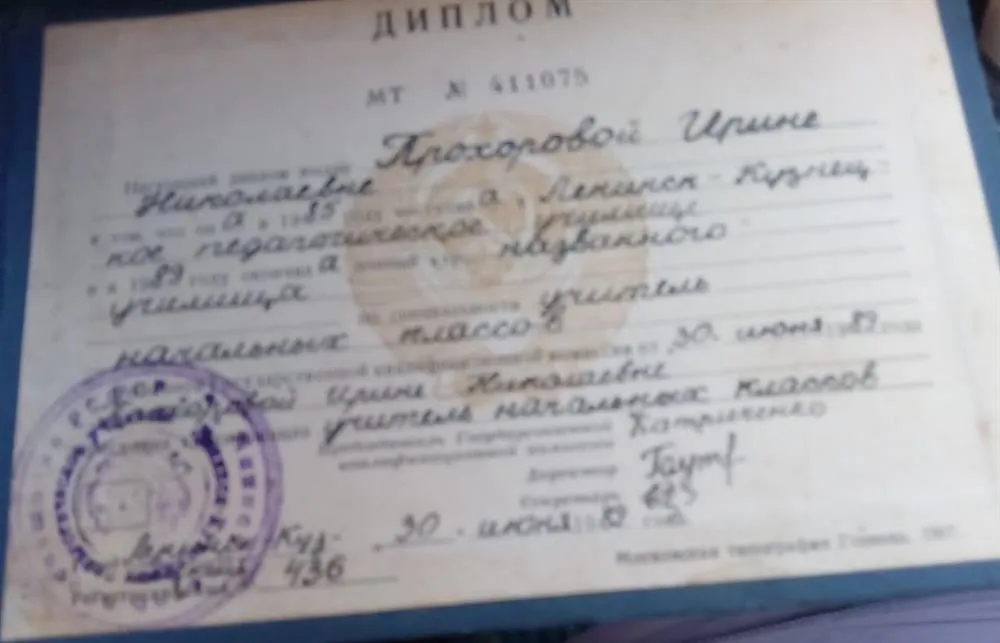 ДИПЛОМ
МТ № 411075
Настоящий диплом выдан Прохоровой Ирине
Николаевне
в том, что он а в 1985 году поступил а в Ленинск-Кузнец-
кое педагогическое училище
и в 1989 году окончил а полный курс названного
училища
по специальности учитель
начальных классов
Государственной квалификационной комиссии от 30 июня 1989 года
Прохоровой Ирине Николаевне
учитель начальных классов
Председатель Государственной
квалификационной комиссии
Директор
Секретарь
30 июня 1989 года
436
Московская типография Гознака. 1987.